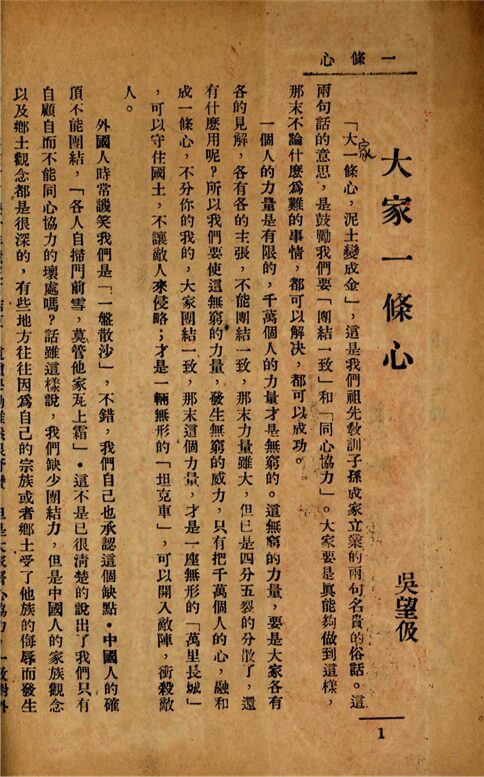 一條心
大家一條心
吳望伋
1
「大家一條心，泥土變成金」，這是我們祖先教訓子孫成家立業的兩句名貴的俗話。這
兩句話的意思，是鼓勵我們要「團結一致」和「同心協力」。大家要是眞能夠做到這樣，
那末不論什麽爲難的事情，都可以解决，都可以成功。
一個人的力量是有限的，千萬個人的力量才是無窮的。這無窮的力量，要是大家各有
各的見解，各有各的主張，不能團結一致，那末力量雖大，但已是四分五裂的分散了，還
有什麽用呢？所以我們要使這無窮的力量，發生無窮的威力，只有把千萬個人的心，融和
成一條心，不分你的我的，大家團結一致，那末這個力量，才是一座無形的「萬里長城」
，可以守住國土，不讓敵人來侵略；才是一輛無形的「坦克車」，可以開入敵陣，衝殺敵
人。
外國人時常譏笑我們是「一盤散沙」，不錯，我們自己也承認這個缺點。中國人的確
頂不能團結，「各人自掃門前雪，莫管他家瓦上霜」。這不是已很清楚的說出了我們只有
自顧自而不能同心協力的壞處嗎？話雖這樣說，我們缺少團結力，但是中國人的家族觀念
以及鄉土觀念都是很深的，有些地方往往因爲自己的宗族或者鄉土受了他族的侮辱而發生